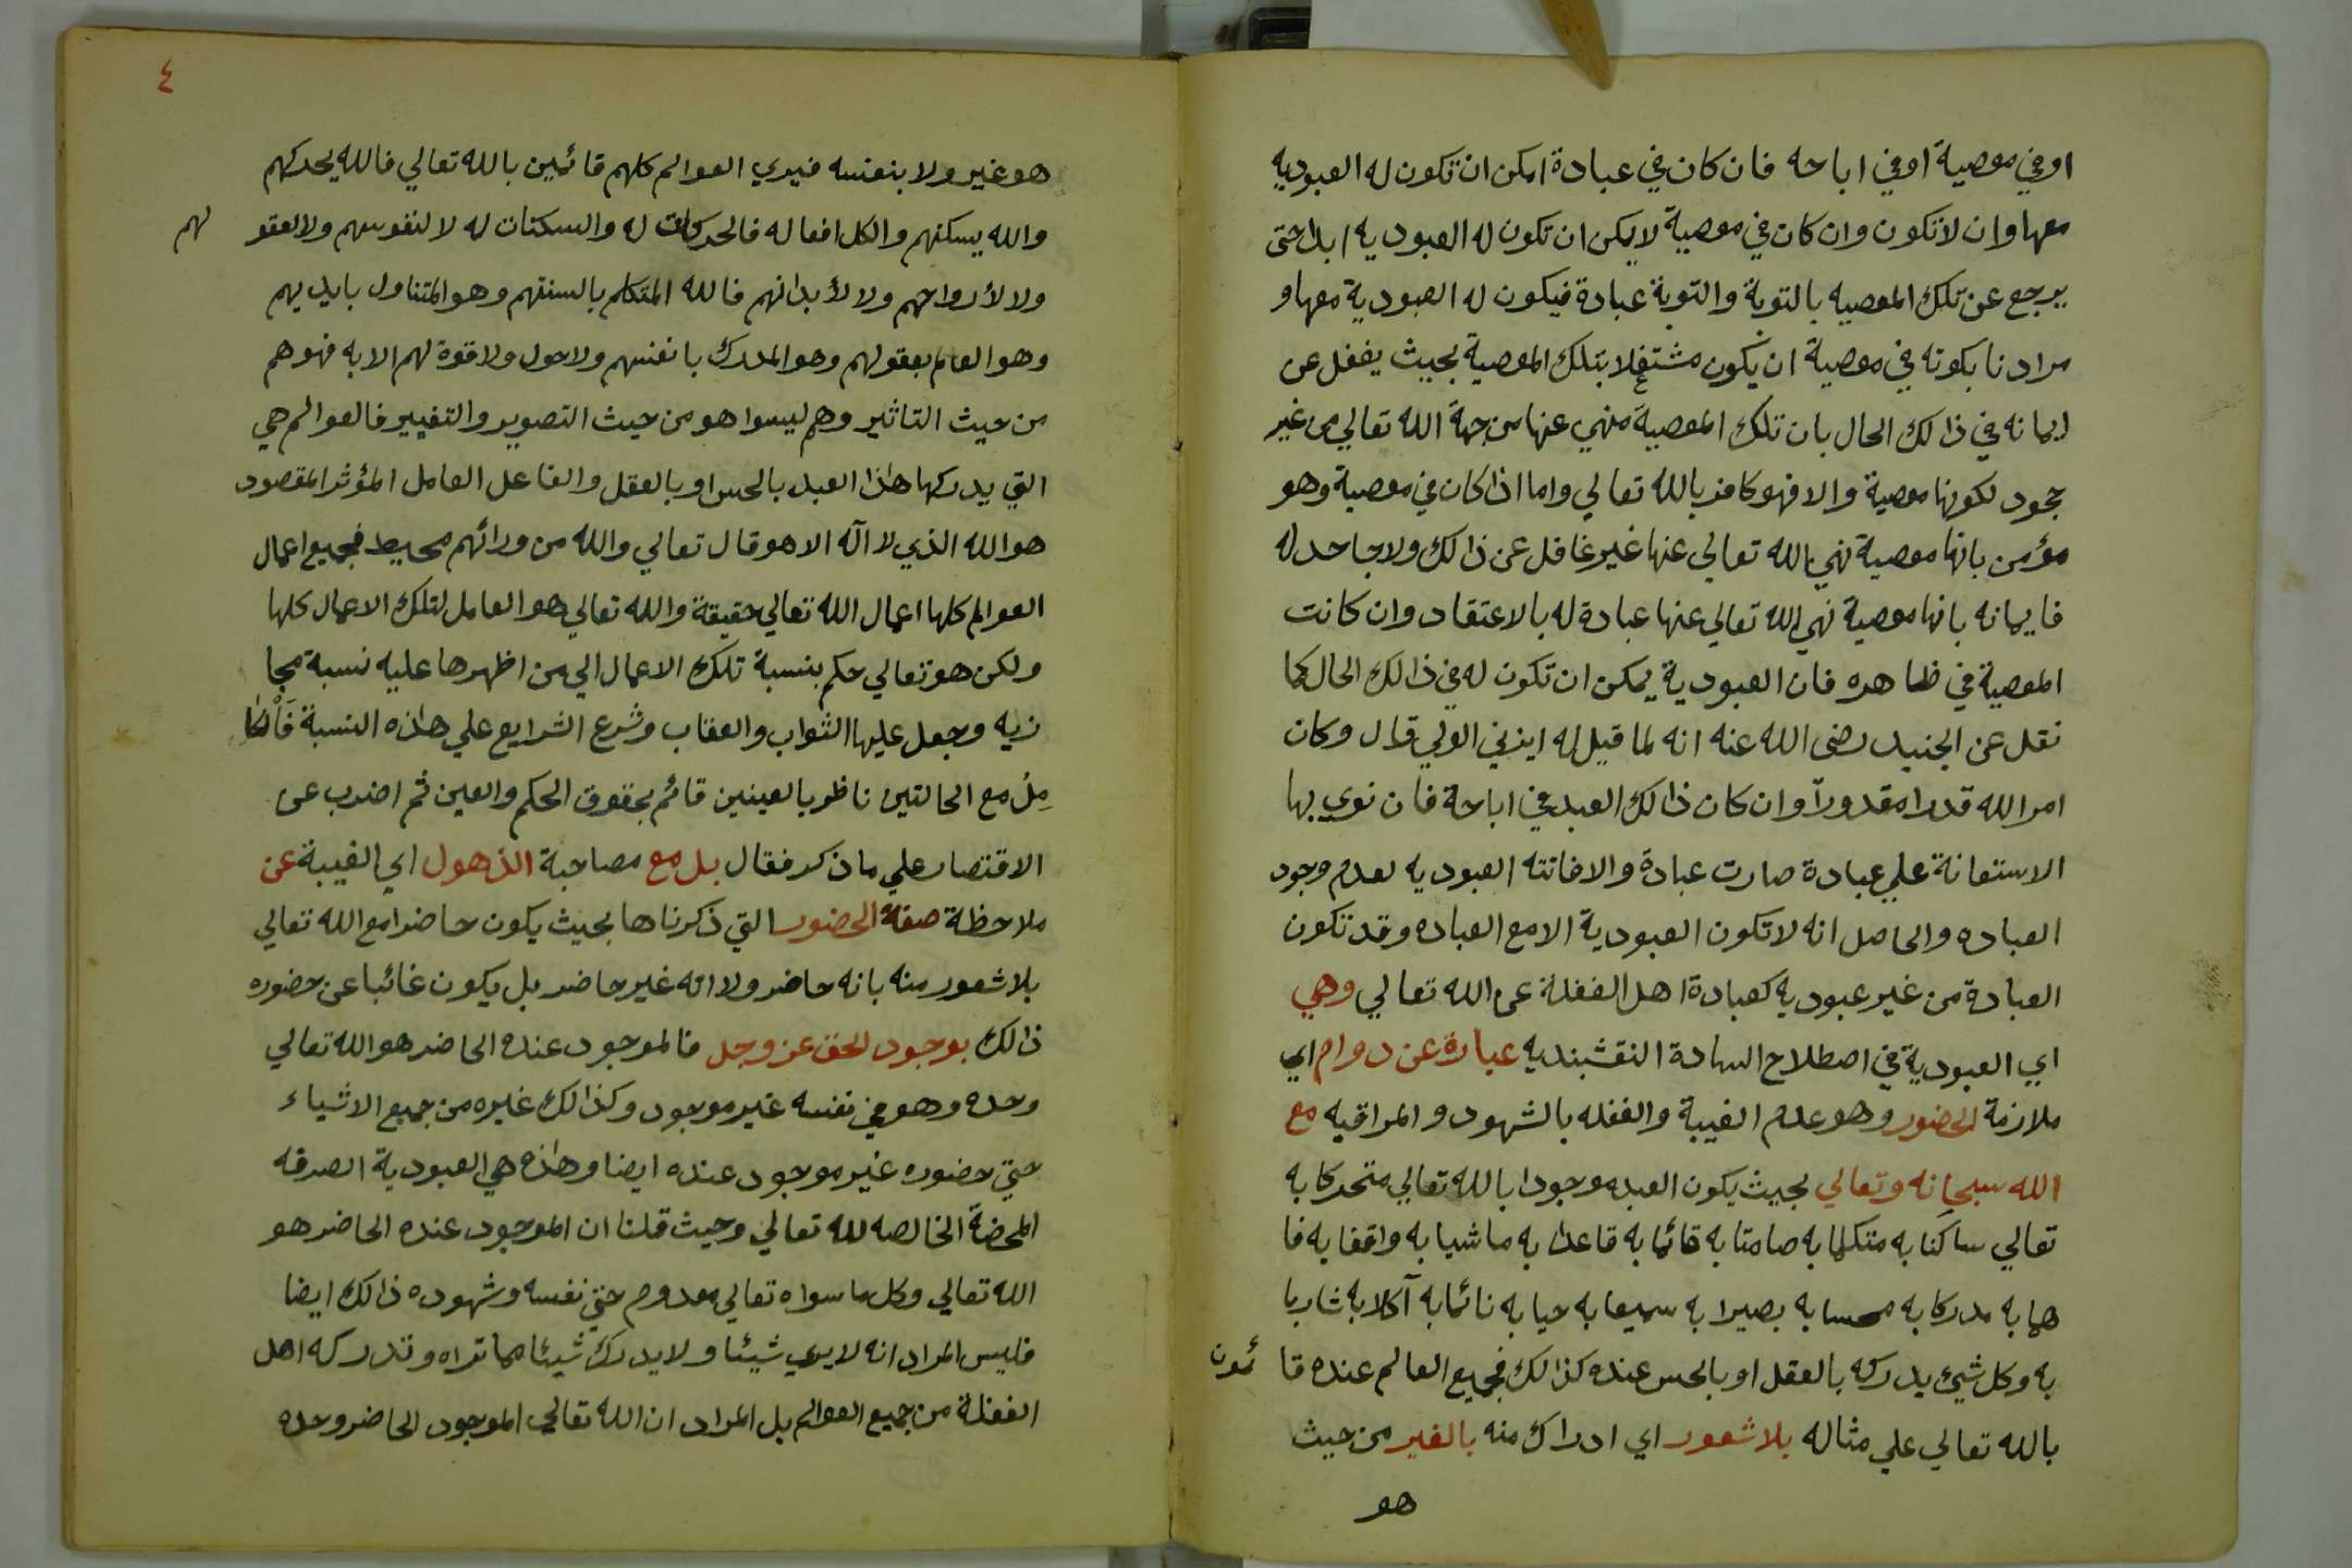 او في معصية او في اباحه فان كان في عبادة امكن ان تكون له العبوديه
معها وان لا تكون وان كان في معصية لا يمكن ان تكون له العبوديه ابدا حتى
يرجع عن تلك المعصيه بالتوبة والتوبة عبادة فيكون له العبودية معها و
مرادنا بكونه في معصية ان يكون مشتغلا بتلك المعصية بحيث يغفل عن
ايمانه في ذالك الحال بان تلك المعصية منهي عنها من جهة الله تعالي من غير
جحود لكونها معصية والا فهو كافر بالله تعالي واما اذا كان في معصية وهو
مؤمن بانها معصية نهي الله تعالي عنها غير غافل عن ذالك ولا جاحد له
فايمانه بانها معصية نهي الله تعالي عنها عبادة له بالاعتقاد وان كانت
المعصية في ظاهره فان العبودية يمكن ان تكون له في ذالك الحال كما
نقل عن الجنيد رضى الله عنه انه لما قيل له ايزني الولي قال وكان
امر الله قدرا مقدوراً وان كان ذالك العبد في اباحة فان نوي بها
الاستعانة علي عبادة صارت عبادة والا فاتته العبوديه لعدم وجود
العباده والحاصل انه لا تكون العبودية الا مع العباده وقد تكون
العبادة من غير عبوديه كعبادة اهل الغفلة عن الله تعالي وهي
اي العبودية في اصطلاح السادة النقشبنديه عبارة عن دوام اي
ملازمة الحضور وهو عدم الغيبة والغفله بالشهود والمراقبه مع
الله سبحانه وتعالي بحيث يكون العبد موجودا بالله تعالي متحركا به
تعالي ساكنا به متكلما به صامتا به قائما به قاعدا به ماشيا به واقفا به فا
هما به مدركا به محسا به بصيرا به سميعا به حيا به نائما به آكلا به شاربا
به وكل شيئ يدركه بالعقل او بالحس عنده كذالك فجميع العالم عنده قا ئمون
بالله تعالي علي مثاله بلا شعور اي ادراك منه بالغير من حيث
هو
٤
هو غير ولا بنفسه فيري العوالم كلهم قائمين بالله تعالي فالله يحركهم
والله يسكنهم والكل افعاله فالحركات له والسكنات له لا لنفوسهم ولا لعقو لهم
ولا لأرواحهم ولا لأبدانهم فالله المتكلم بالسنتهم وهو المتناول بايديهم
وهو العالم بعقولهم وهو المدرك بانفسهم ولا حول ولا قوة لهم الا به فهو هم
من حيث التاثير وهم ليسوا هو من حيث التصوير والتغيير فالعوالم هي
التي يدركها هاذا العبد بالحس او بالعقل والفاعل العامل المؤثر المقصود
هو الله الذي لا اله الا هو قال تعالي والله من ورائهم محيط فجميع اعمال
العوالم كلها اعمال الله تعالي حقيقة والله تعالي هو العامل لتلك الاعمال كلها
ولكن هو تعالي حكم بنسبة تلك الاعمال الي من اظهرها عليه نسبة مجا
زيه وجعل عليها الثواب والعقاب وشرع الشرايع علي هاذه النسبة فَالْكا
مِلُ مع الحالتين ناظر بالعينين قائم بحقوق الحكم والعين ثم اضرب عن
الاقتصار علي ما ذكر فقال بل مع مصاحبة الذهول اي الغيبة عن
ملاحظة صفة الحضور التي ذكرناها بحيث يكون حاضرا مع الله تعالي
بلا شعور منه بانه حاضر ولا انه غير حاضر بل يكون غائبا عن حضوره
ذالك بوجود الحق عز وجل فالموجود عنده الحاضر هو الله تعالي
وحده وهو في نفسه غير موجود وكذالك غيره من جميع الاشياء
حتي حضوره غير موجود عنده ايضا وهاذه هي العبودية الصرفه
المحضة الخالصه لله تعالي وحيث قلنا ان الموجود عنده الحاضر هو
الله تعالي وكل ما سواه تعالي معدوم حتي نفسه وشهوده ذالك ايضا
فليس المراد انه لا يري شيئا ولا يدرك شيئا مما تراه وتدركه اهل
الغفلة من جميع العوالم بل المراد ان الله تعالي الموجود الحاضر وحده